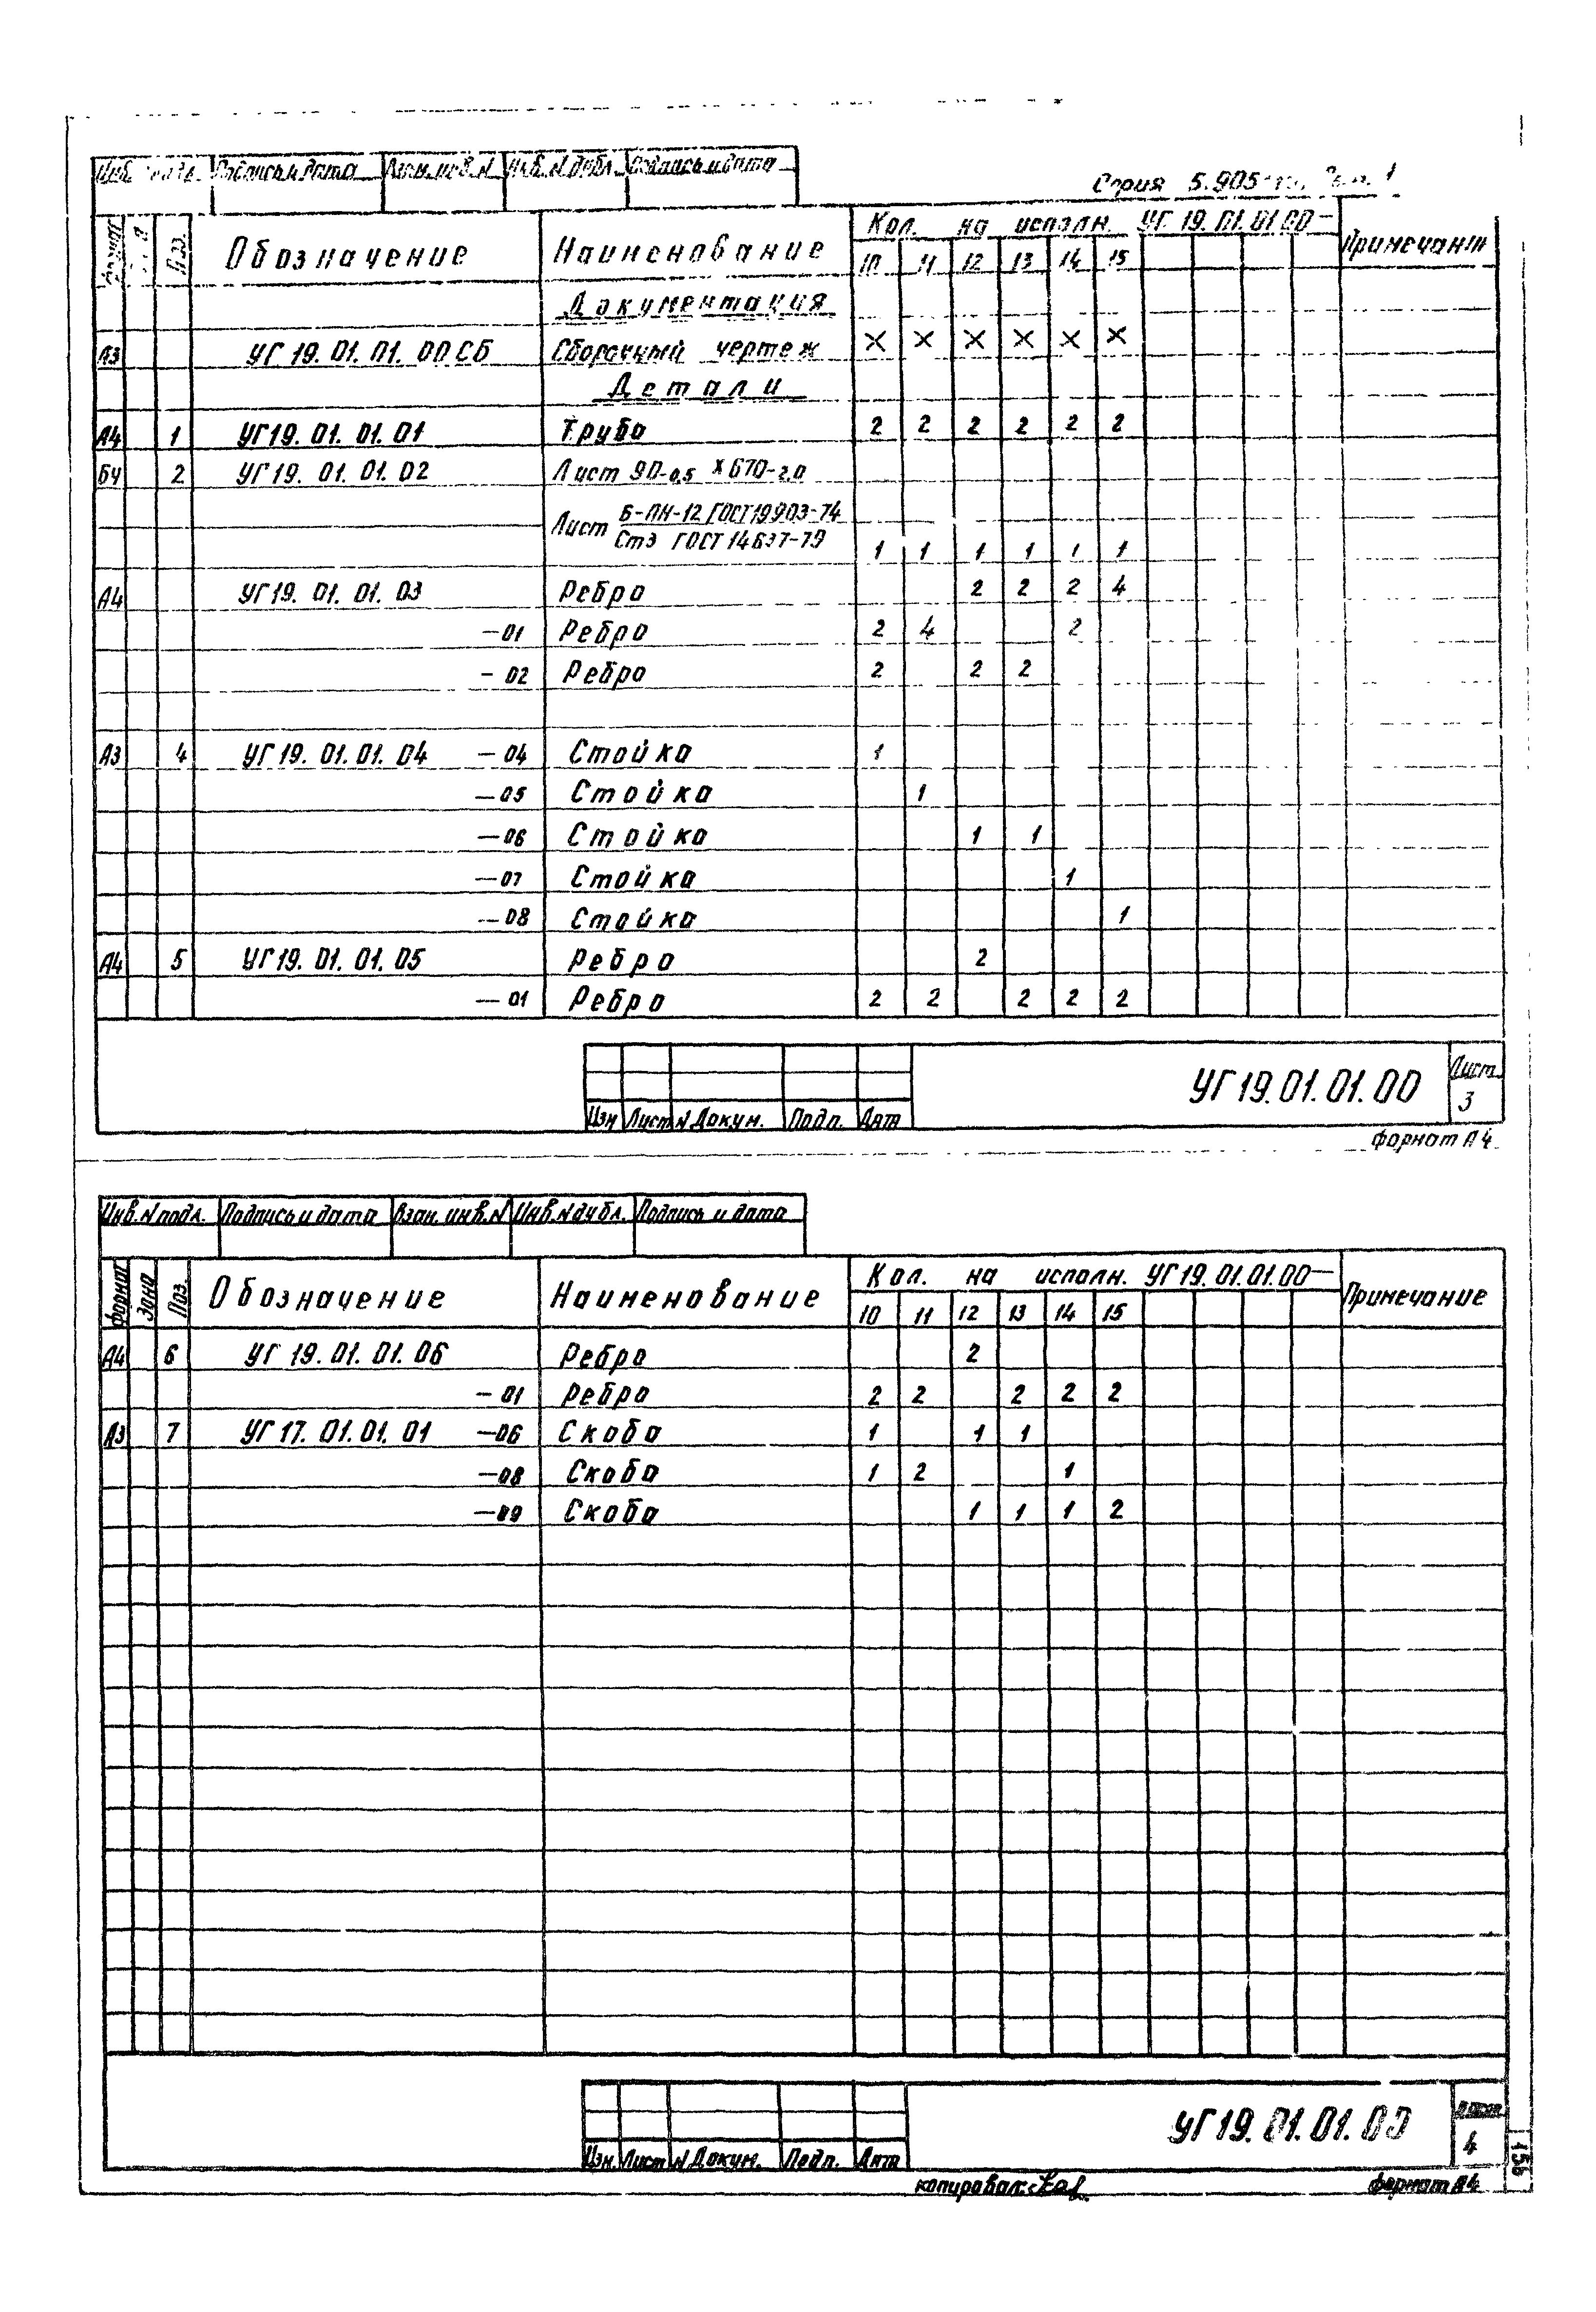 Подпись и дата Взам. инв. N Инв. N дубл. Подпись и дата
Серия 5.905
Поз. Обозначение Наименование Кол. на исполн. УГ 19.01.01.00— Примечание
10 11 12 13 14 15
Документация
А3 УГ 19.01.01.00 СБ Сборочный чертеж X X X X X X
Детали
А4 1 УГ19.01.01.01 Труба 2 2 2 2 2 2
БЧ 2 УГ19.01.01.02 Лист 90-0,5 х 670-2,0
Лист Б-ПН-12 ГОСТ19903-74
Ст3 ГОСТ14637-79 1 1 1 1 1 1
А4 УГ19.01.01.03 Ребро 2 2 2 4
—01 Ребро 2 4 2
—02 Ребро 2 2 2
А3 4 УГ19.01.01.04 —04 Стойка 1
—05 Стойка 1
—06 Стойка 1 1
—07 Стойка 1
—08 Стойка 1
А4 5 УГ19.01.01.05 Ребро 2
—01 Ребро 2 2 2 2 2
УГ19.01.01.00 Лист
3
Изм Лист N Докум. Подп. Дата
формат А4
Инв. N подл. Подпись и дата Взам. инв. N Инв. N дубл. Подпись и дата
Формат Зона Поз. Обозначение Наименование Кол. на исполн. УГ19.01.01.00— Примечание
10 11 12 13 14 15
А4 6 УГ 19.01.01.06 Ребро 2
—01 Ребро 2 2 2 2 2
А3 7 УГ17.01.01.01 —06 Скоба 1 1 1
—08 Скоба 1 2 1
—09 Скоба 1 1 1 2
УГ19.01.01.00 Лист
4
Изм Лист N Докум. Подп. Дата
копировал: формат А4
156